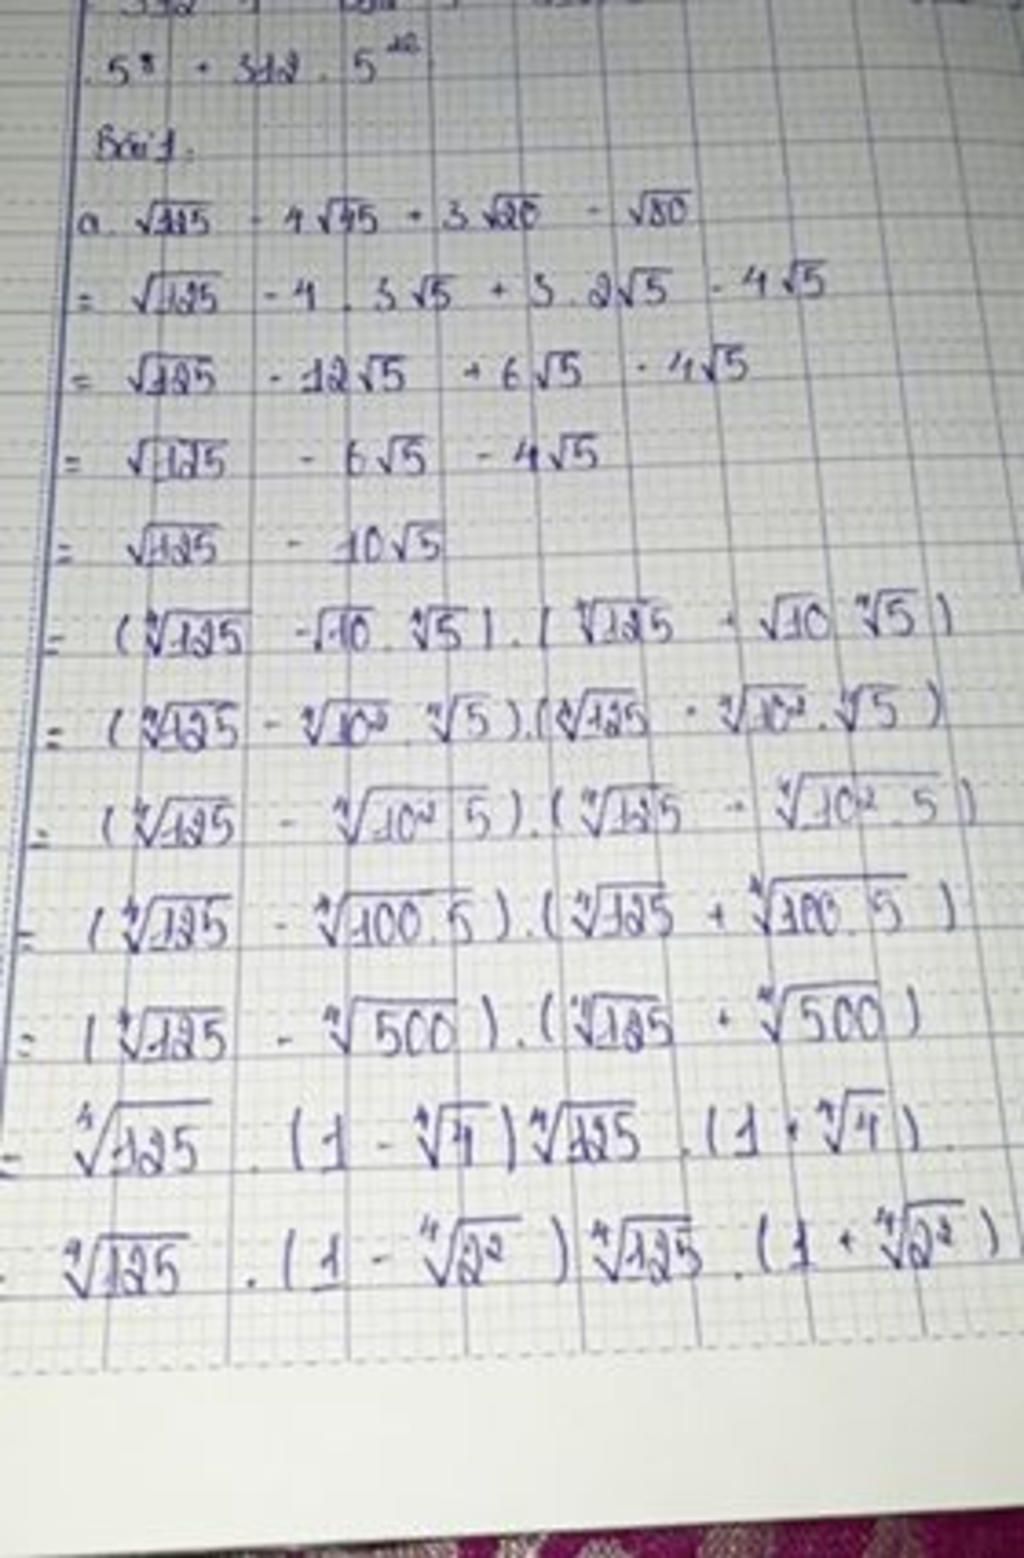 5⁸ + 312 . 5¹²
Bài 1.
a. √125 - 4√45 + 3√20 - √80
= √125 - 4 . 3√5 + 3 . 2√5 - 4√5
= √125 - 12√5 + 6√5 - 4√5
= √125 - 6√5 - 4√5
= √125 - 10√5
= (⁴√125 - √10 . ⁴√5) . (⁴√125 + √10 ⁴√5)
= (⁴√125 - ⁴√10² . ⁴√5) . (⁴√125 + ⁴√10² . ⁴√5)
= (⁴√125 - ⁴√10² . 5) . (⁴√125 + ⁴√10² . 5)
= (⁴√125 - ⁴√100 . 5) . (⁴√125 + ⁴√100 . 5)
= (⁴√125 - ⁴√500) . (⁴√125 + ⁴√500)
= ⁴√125 . (1 - ⁴√4) ⁴√125 . (1 + ⁴√4)
= ⁴√125 . (1 - ⁴√2²) ⁴√125 . (1 + ⁴√2²)